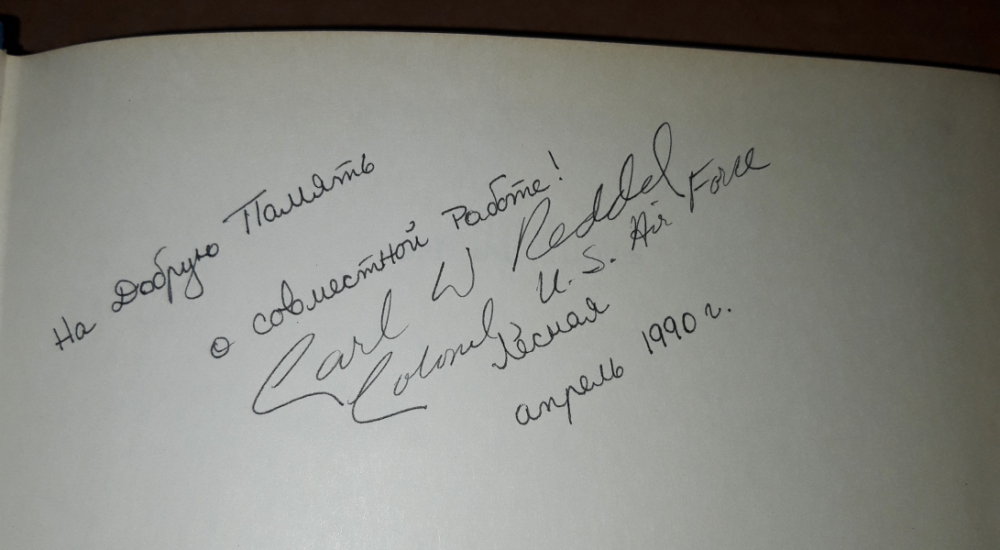 На Добрую Память
о совместной Работе!
Carl W Reddel
Colonel U. S. Air Force
Лесная
апрель 1990 г.